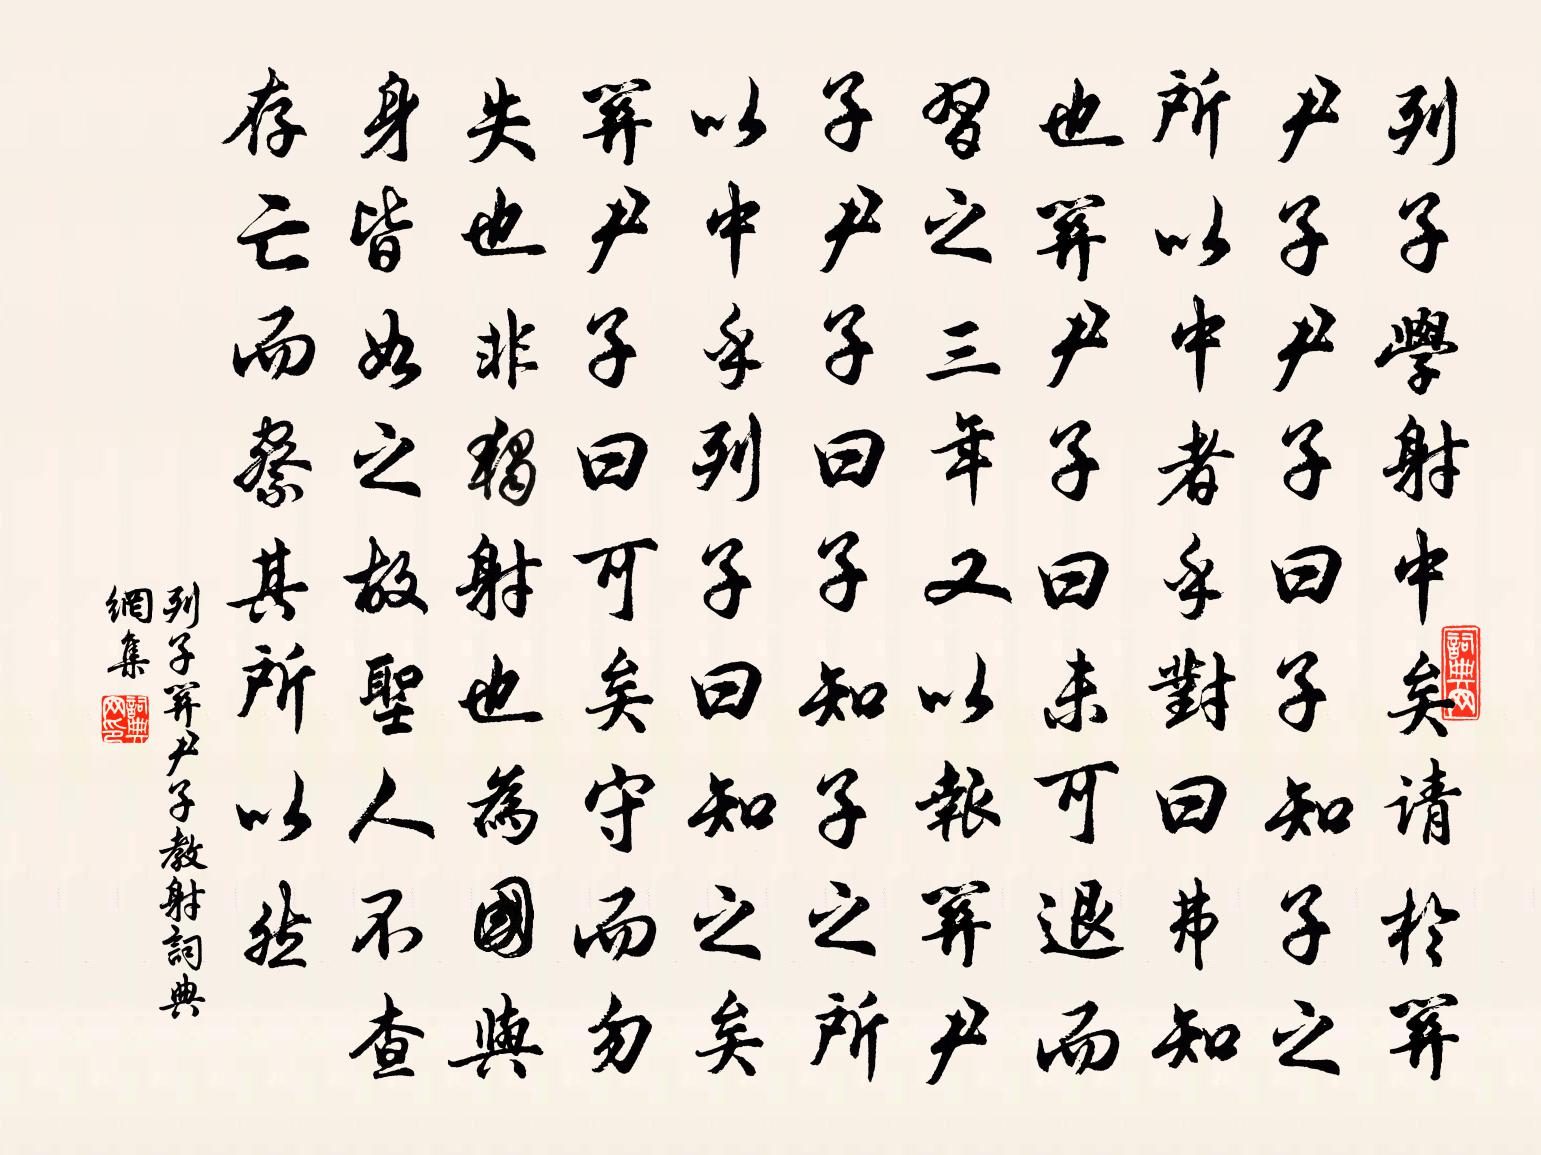 列子學射中矣请於關
尹子尹子曰子知子之
所以中者乎對曰弗知
也關尹子曰未可退而
習之三年又以報關尹
子尹子曰子知子之所
以中乎列子曰知之矣
關尹子曰可矣守而勿
失也非獨射也為國與
身皆如之故聖人不查
存亡而察其所以然
列子關尹子教射詞典
網集
詞典网
詞典网印